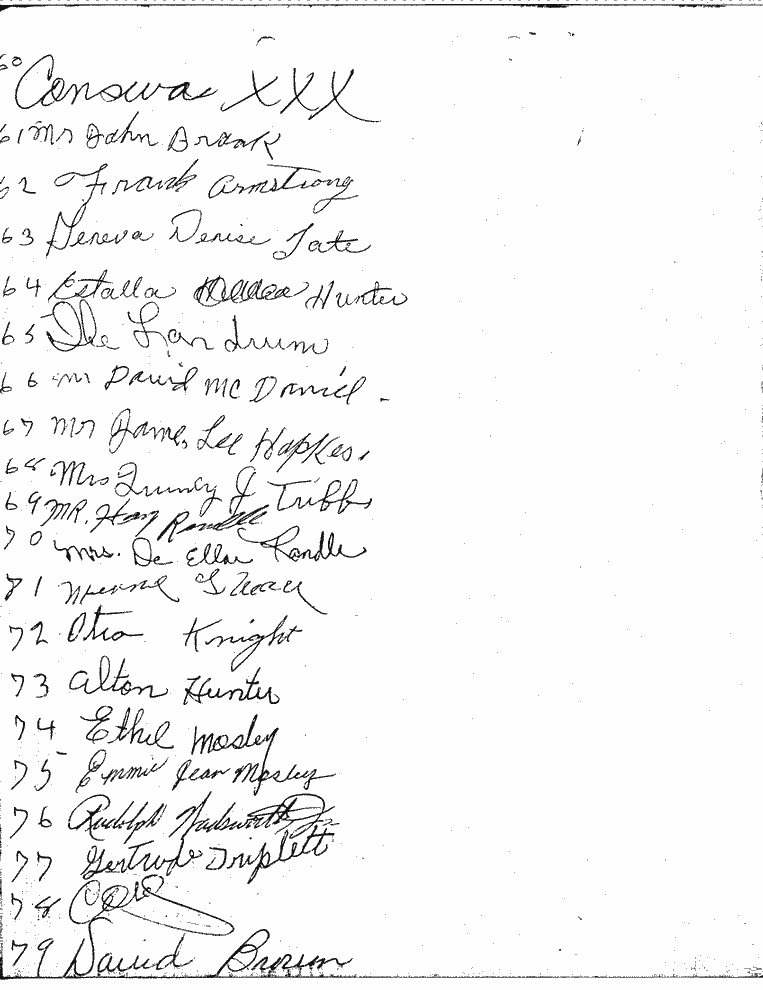 60 Conswa XXX
61 Mr John Brook
62 Frank Armstrong
63 Geneva Denise Tate
64 Estalla Hunter
65 Landrum
66 mr David Mc Daniel
67 Mr James Lee Hopkes
68 Mrs Quincy J Tribb
69 MR. Randle
70 Mrs. De Ella Randle
71
72 Otis Knight
73 Alton Hunter
74 Ethel Mosley
75 Emmie Jean Mosley
76 Rudolph Wadsworth Jr.
77 Gertrude Triplett
78
79 David Brown